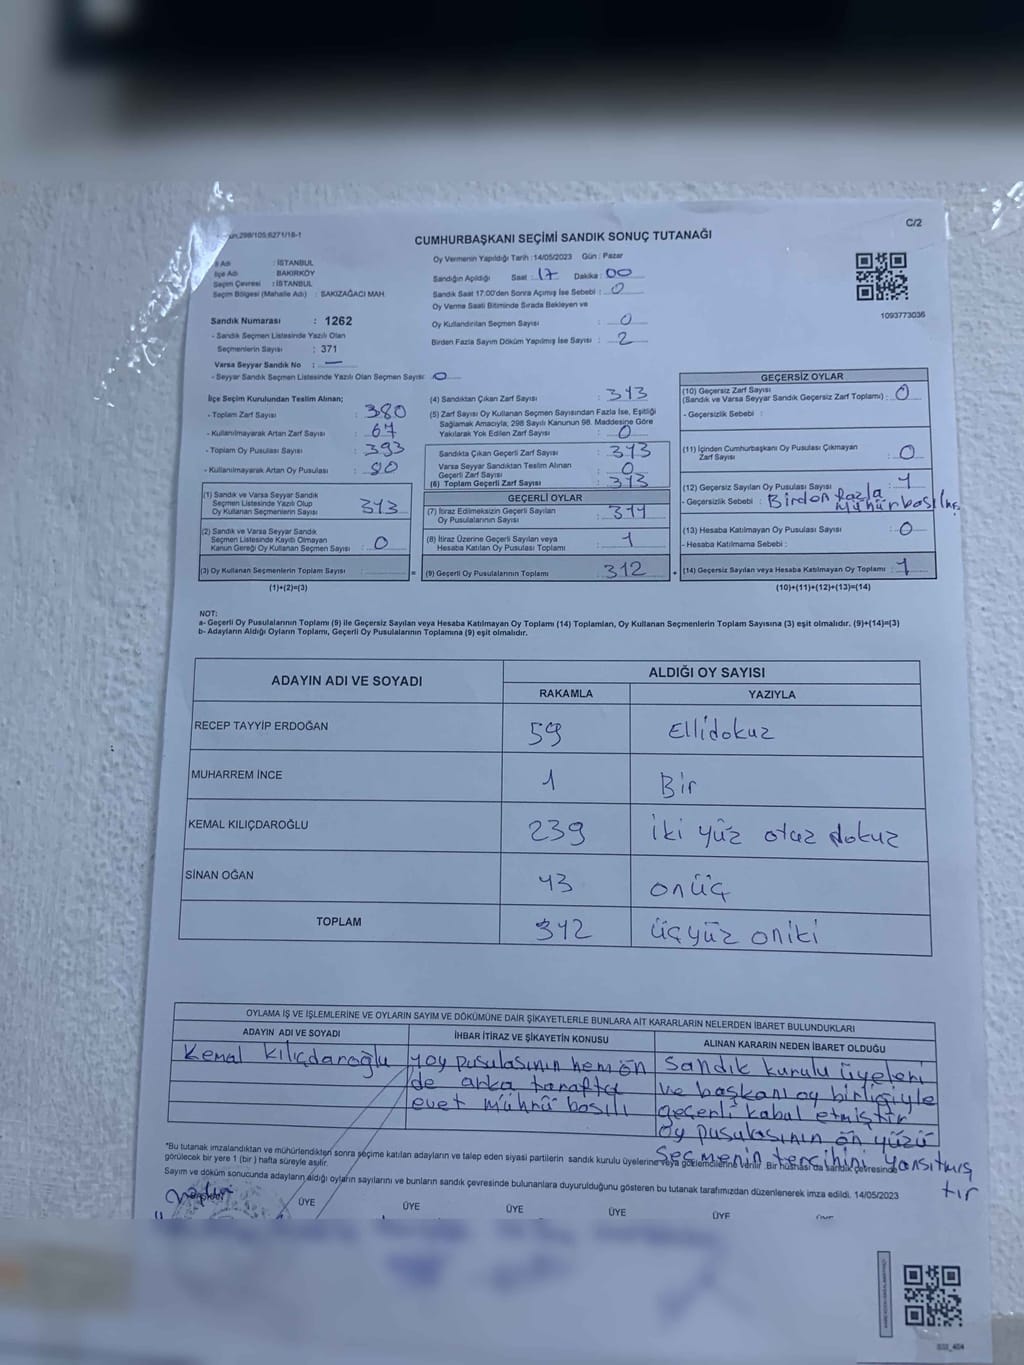 C/2
CUMHURBAŞKANI SEÇİMİ SANDIK SONUÇ TUTANAĞI
1093773036
İl Adı : İSTANBUL
İlçe Adı : BAKIRKÖY
Seçim Çevresi : İSTANBUL
Seçim Bölgesi (Mahalle Adı) : SAKIZAĞACI MAH.
Sandık Numarası : 1262
- Sandık Seçmen Listesinde Yazılı Olan
Seçmenlerin Sayısı : 371
Varsa Seyyar Sandık No : —
- Seyyar Sandık Seçmen Listesinde Yazılı Olan Seçmen Sayısı: 0
Oy Vermenin Yapıldığı Tarih : 14/05/2023 Gün : Pazar
Sandığın Açıldığı Saat : 17 Dakika : 00
Sandık Saat 17:00'den Sonra Açımış İse Sebebi : 0
Oy Verme Saati Bitiminde Sırada Bekleyen ve
Oy Kullandırılan Seçmen Sayısı : 0
Birden Fazla Sayım Döküm Yapılmış İse Sayısı : 2
İlçe Seçim Kurulundan Teslim Alınan;
- Toplam Zarf Sayısı : 380
- Kullanılmayarak Artan Zarf Sayısı : 67
- Toplam Oy Pusulası Sayısı : 393
- Kullanılmayarak Artan Oy Pusulası : 80
(1) Sandık ve Varsa Seyyar Sandık
Seçmen Listesinde Yazılı Olup
Oy Kullanan Seçmenlerin Sayısı : 313
(2) Sandık ve Varsa Seyyar Sandık
Seçmen Listesinde Kayıtlı Olmayan
Kanun Gereği Oy Kullanan Seçmen Sayısı : 0
(3) Oy Kullanan Seçmenlerin Toplam Sayısı :
(1)+(2)=(3)
(4) Sandıktan Çıkan Zarf Sayısı : 313
(5) Zarf Sayısı Oy Kullanan Seçmen Sayısından Fazla İse, Eşitliği
Sağlamak Amacıyla, 298 Sayılı Kanunun 98. Maddesine Göre
Yakılarak Yok Edilen Zarf Sayısı : 0
Sandıkta Çıkan Geçerli Zarf Sayısı : 313
Varsa Seyyar Sandıktan Teslim Alınan
Geçerli Zarf Sayısı : 0
(6) Toplam Geçerli Zarf Sayısı : 313
GEÇERLİ OYLAR
(7) İtiraz Edilmeksizin Geçerli Sayılan
Oy Pusulalarının Sayısı : 311
(8) İtiraz Üzerine Geçerli Sayılan veya
Hesaba Katılan Oy Pusulası Toplamı : 1
= (9) Geçerli Oy Pusulalarının Toplamı 312
GEÇERSİZ OYLAR
(10) Geçersiz Zarf Sayısı
(Sandık ve Varsa Seyyar Sandık Geçersiz Zarf Toplamı) : 0
- Geçersizlik Sebebi :
(11) İçinden Cumhurbaşkanı Oy Pusulası Çıkmayan
Zarf Sayısı : 0
(12) Geçersiz Sayılan Oy Pusulası Sayısı : 1
- Geçersizlik Sebebi : Birden fazla
mühür basılmış
(13) Hesaba Katılmayan Oy Pusulası Sayısı : 0
- Hesaba Katılmama Sebebi :
+ (14) Geçersiz Sayılan veya Hesaba Katılmayan Oy Toplamı : 1
(10)+(11)+(12)+(13)=(14)
NOT:
a- Geçerli Oy Pusulalarının Toplamı (9) ile Geçersiz Sayılan veya Hesaba Katılmayan Oy Toplamı (14) Toplamları, Oy Kullanan Seçmenlerin Toplam Sayısına (3) eşit olmalıdır. (9)+(14)=(3)
b- Adayların Aldığı Oyların Toplamı, Geçerli Oy Pusulalarının Toplamına (9) eşit olmalıdır.
ADAYIN ADI VE SOYADI
ALDIĞI OY SAYISI
RAKAMLA YAZIYLA
RECEP TAYYİP ERDOĞAN 59 Ellidokuz
MUHARREM İNCE 1 Bir
KEMAL KILIÇDAROĞLU 239 iki yüz otuz dokuz
SİNAN OĞAN 13 onüç
TOPLAM 312 üçyüz oniki
OYLAMA İŞ VE İŞLEMLERİNE VE OYLARIN SAYIM VE DÖKÜMÜNE DAİR ŞİKAYETLERLE BUNLARA AİT KARARLARIN NELERDEN İBARET BULUNDUKLARI
ADAYIN ADI VE SOYADI
İHBAR İTİRAZ VE ŞİKAYETİN KONUSU
ALINAN KARARIN NEDEN İBARET OLDUĞU
Kemal Kılıçdaroğlu
1 oy pusulasının hem ön
de arka tarafta
evet mührü basılı
Sandık kurulu üyeleri
ve başkanı oy birliğiyle
geçerli kabul etmiştir
Oy pusulasının ön yüzü
seçmenin tercihini yansıtmış
tır
*Bu tutanak imzalandıktan ve mühürlendikten sonra seçime katılan adayların ve talep eden siyasi partilerin sandık kurulu üyelerine veya gözlemcilerine verilir. Bir nüshası da sandık çevresinde
görülecek bir yere 1 (bir) hafta süreyle asılır.
Sayım ve döküm sonucunda adayların aldığı oyların sayılarını ve bunların sandık çevresinde bulunanlara duyurulduğunu gösteren bu tutanak tarafımızdan düzenlenerek imza edildi. 14/05/2023
ÜYE ÜYE ÜYE ÜYE ÜYE